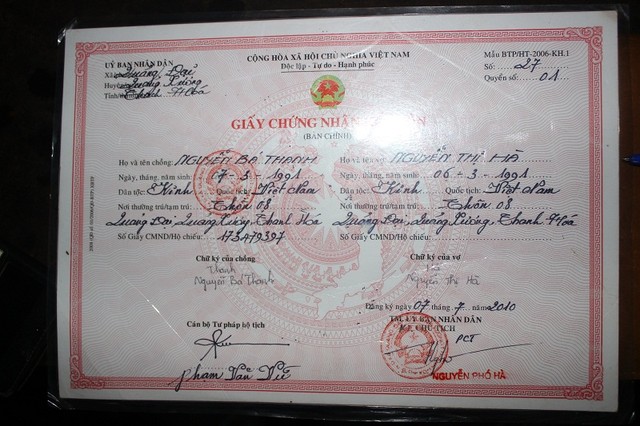 ỦY BAN NHÂN DÂN
Xã Quảng Đại
Huyện Quảng Xương
Tỉnh Thanh Hóa
CỘNG HÒA XÃ HỘI CHỦ NGHĨA VIỆT NAM
Độc lập - Tự do - Hạnh phúc
Mẫu BTP/HT-2006-KH.1
Số: 27
Quyển số: 01
GIẤY CHỨNG NHẬN
(BẢN CHÍNH)
Họ và tên chồng: NGUYỄN BÁ THANH Họ và tên vợ: NGUYỄN THỊ HÀ
Ngày, tháng, năm sinh: 17-3-1991 Ngày, tháng, năm sinh: 06-3-1991
Dân tộc: Kinh Quốc tịch: Việt Nam Dân tộc: Kinh Quốc tịch: Việt Nam
Nơi thường trú/tạm trú: Thôn 08 Nơi thường trú/tạm trú: Thôn 08
Quảng Đại, Quảng Xương, Thanh Hóa Quảng Đại, Quảng Xương, Thanh Hóa
Số Giấy CMND/Hộ chiếu: 173479397 Số Giấy CMND/Hộ chiếu:
Chữ ký của chồng Chữ ký của vợ
Thanh Hà
Nguyễn Bá Thanh Nguyễn Thị Hà
Đăng ký ngày 07 tháng 7 năm 2010
Cán bộ Tư pháp hộ tịch
TM. ỦY BAN NHÂN DÂN
KT. CHỦ TỊCH
PCT
Phạm Văn
NGUYỄN PHỐ HÀ